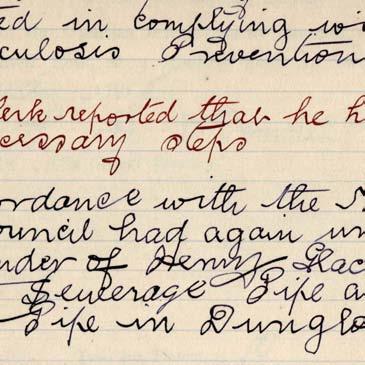 ed in complying wi
culosis Prevention
lerk reported that he h
cessary steps
ordance with the
ouncil had again un
nder of Henry
Sewerage Pipe a
Pipe in Dunglo